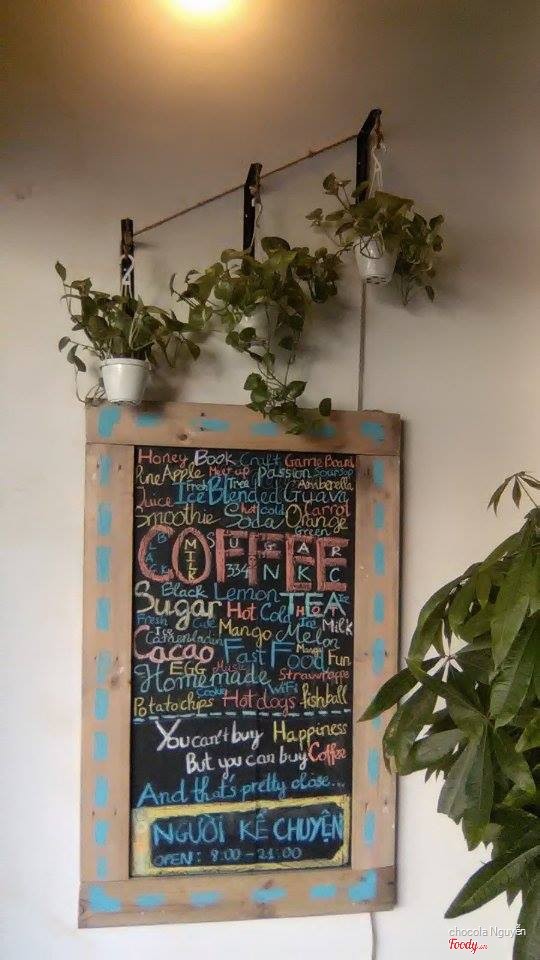 Honey Book Craft Game Board
PineApple Meet up Passion Soursop
Fresh Tree Ambarella
Juice Ice Blended Guava
Smoothie Hot Cold Carrot
Soda Orange
Green
COFFEE
BLACK MILK
334
Black Lemon TEA Ice
Sugar Hot Cold HOA
Fresh Ice Cafe Mango Melon Ice Milk
Cacao Fast Food Mango Fun
EGG Music
Homemade Strawrappe
Cookie WiFi
Potatochips Hot dogs fishball
You can't buy Happiness
But you can buy Coffee
And that's pretty close...
NGƯỜI KỂ CHUYỆN
OPEN: 8:00 - 21:00
chocola Nguyễn
Foody.vn